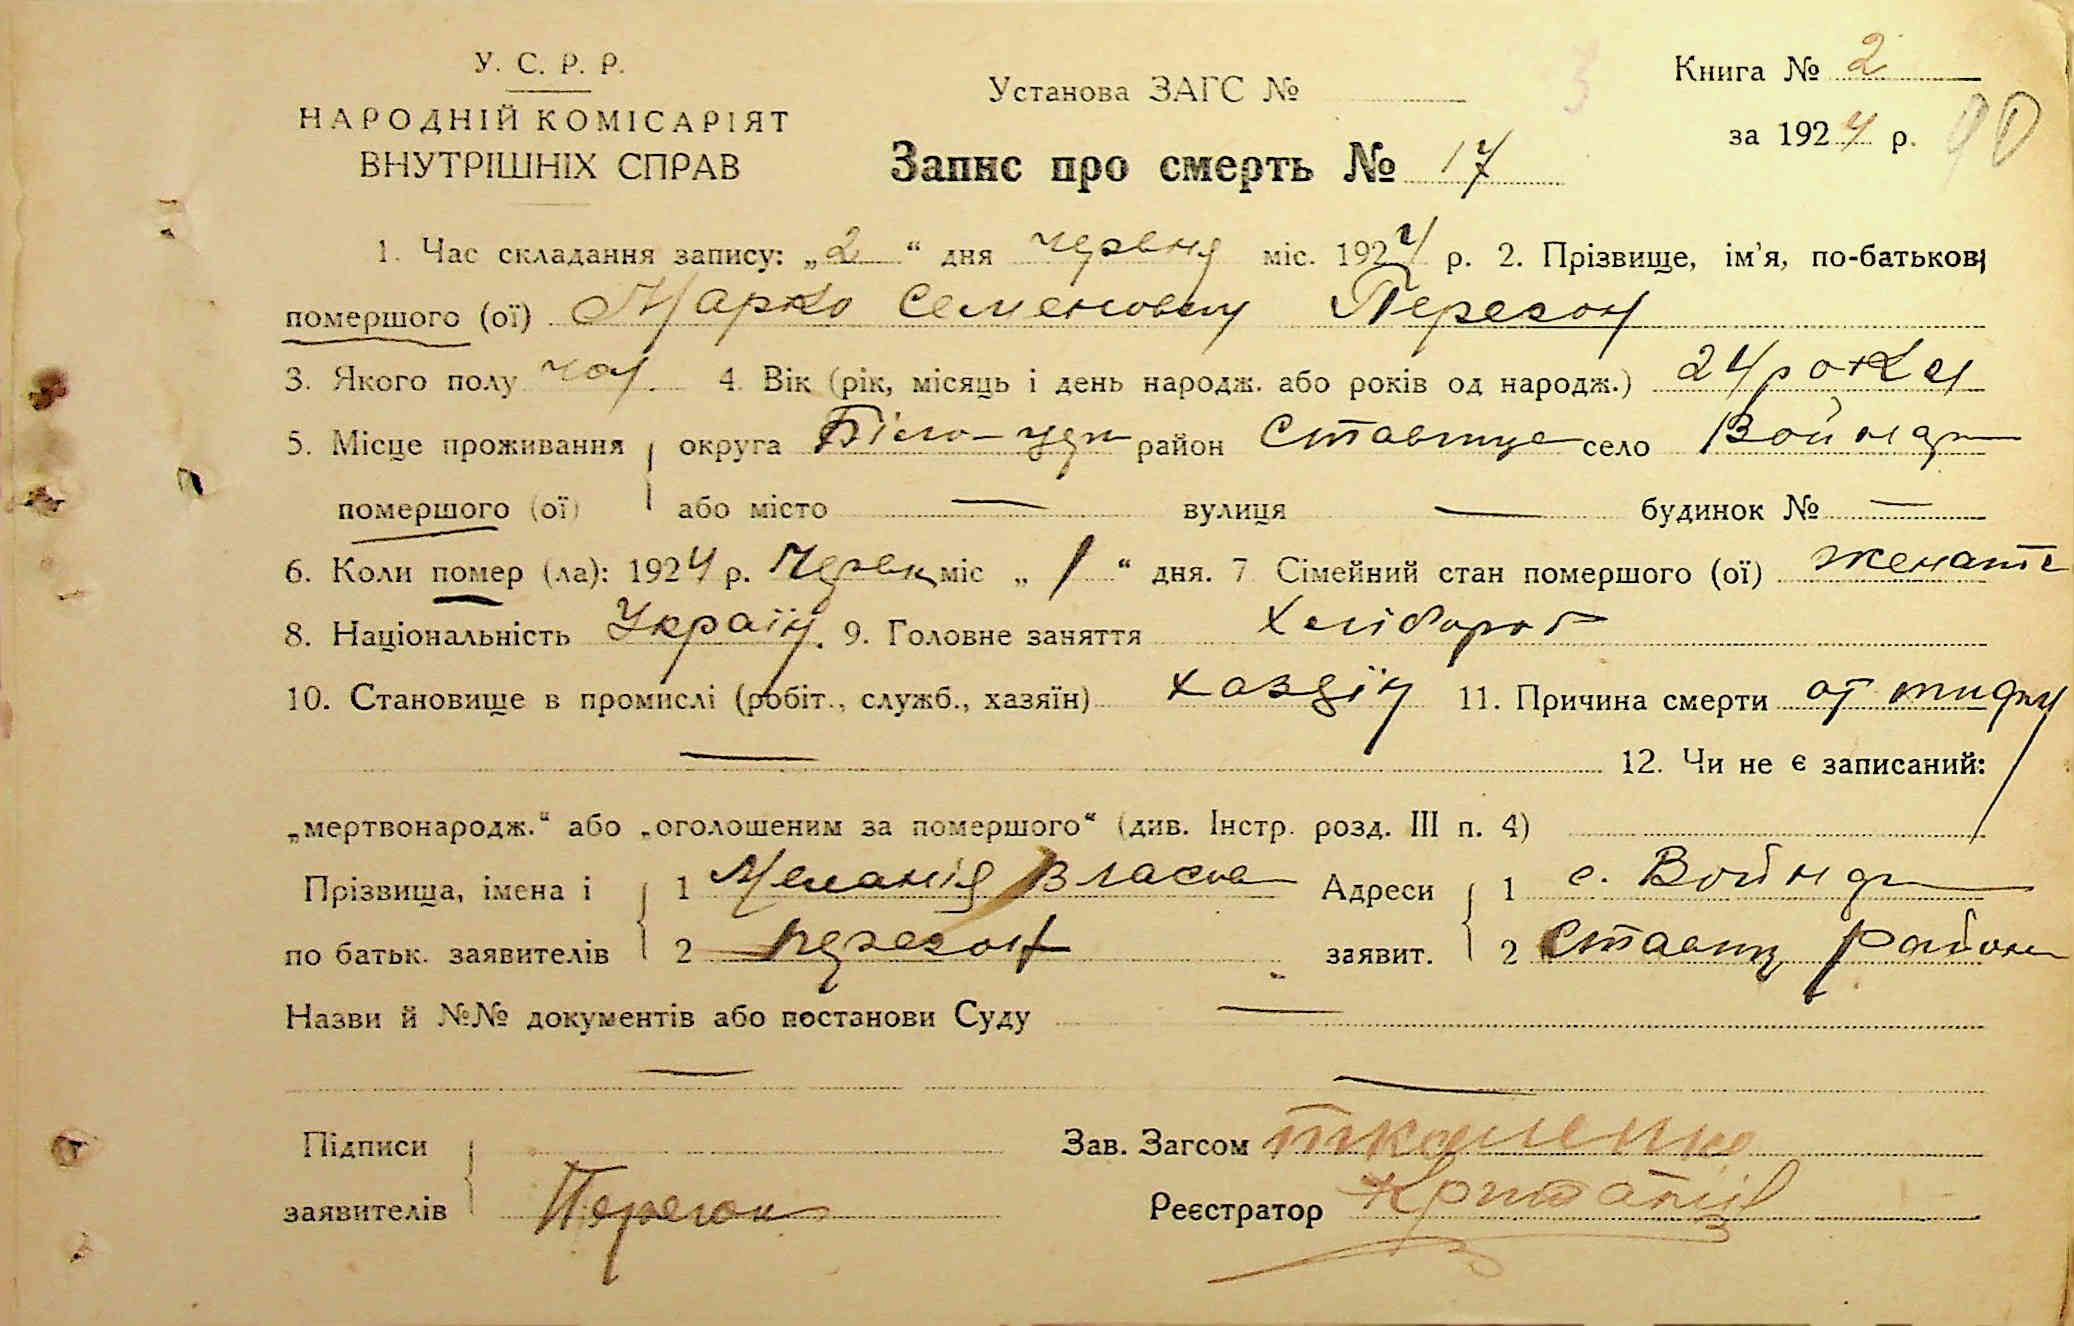 У. С. Р. Р.
НАРОДНІЙ КОМІСАРІЯТ
ВНУТРІШНІХ СПРАВ
Установа ЗАГС №
Книга № 2
за 1924 р.
90
Запис про смерть № 17
1. Час складання запису: „2“ дня червня міс. 1924 р. 2. Прізвище, ім'я, по-батькові
помершого (ої) Марко Семенович Перегон
3. Якого полу чол. 4. Вік (рік, місяць і день народж. або років од народж.) 24 роки
5. Місце проживання округа Біло-церк район Ставище село Войнар
помершого (ої) або місто — вулиця — будинок № —
6. Коли помер (ла): 1924 р. Червн міс „1“ дня. 7 Сімейний стан помершого (ої)
8. Національність Україн. 9. Головне заняття Хлібороб
10. Становище в промислі (робіт., служб., хазяїн) хазяїн 11. Причина смерти от тифу
— 12. Чи не є записаний:
„мертвонародж.“ або „оголошеним за помершого“ (див. Інстр. розд. III п. 4)
Прізвища, імена і 1 Меланія Власов Адреси 1 с. Войнар
по батьк. заявителів 2 Перегон заявит. 2 Ставищ району
Назви й №№ документів або постанови Суду —
— —
Підписи Зав. Загсом Ткаченко
заявителів Перегон Реєстратор